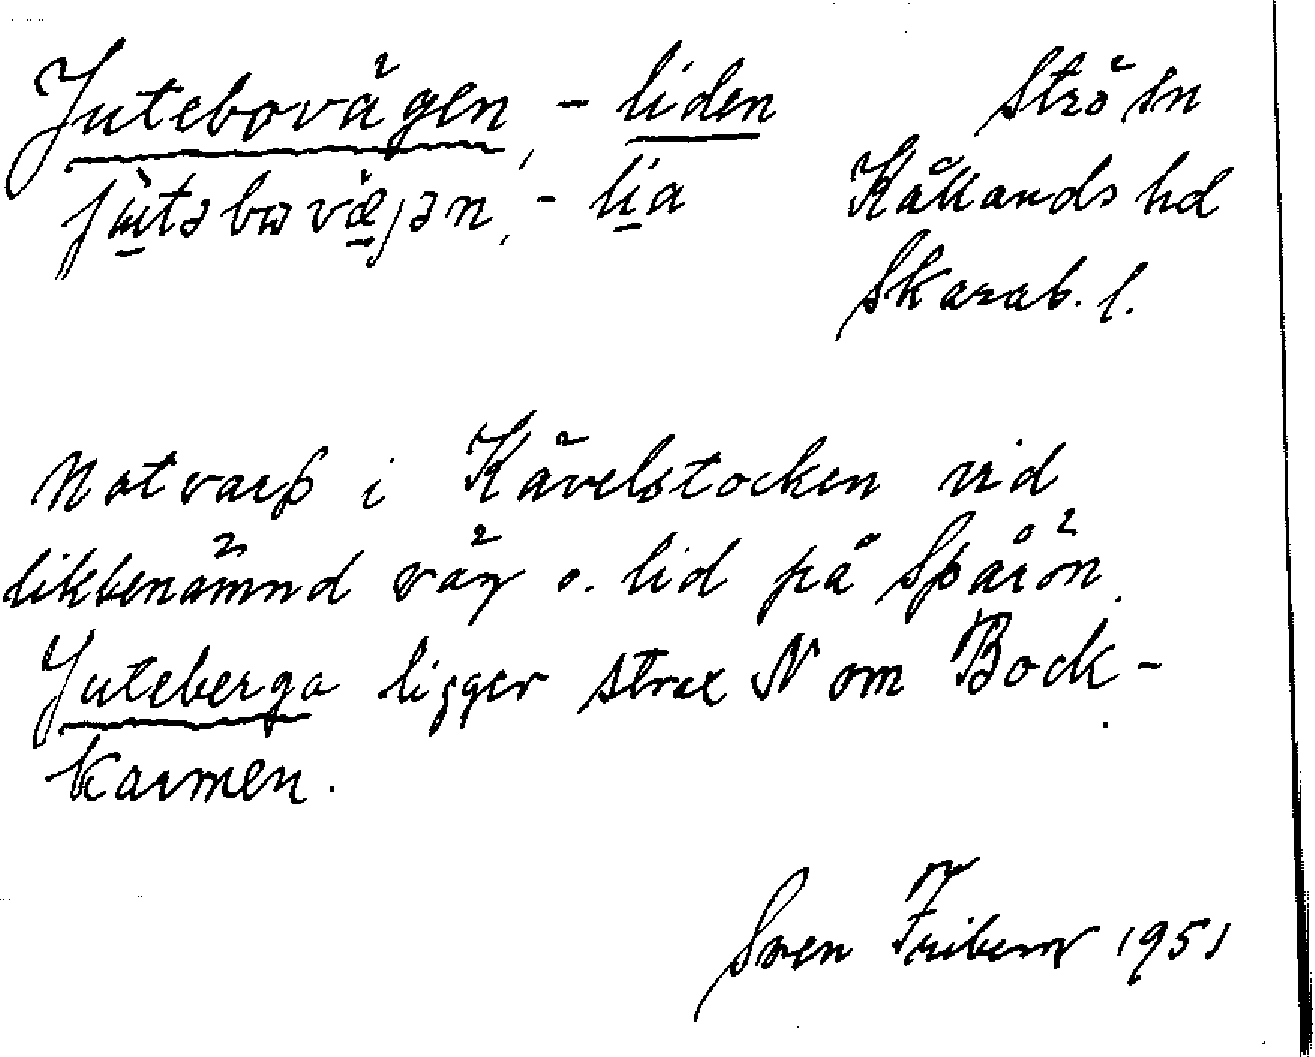 Jutebovägen, -liden Strö sn
jùtəboväjən, -lia Kållands hd
Skarab. l.
Notvarp i Kävelstocken vid
likbenämnd väg o. lid på Spårön.
Juteberga ligger strax N om Bock-
karmen.
Sven Friberg 1951